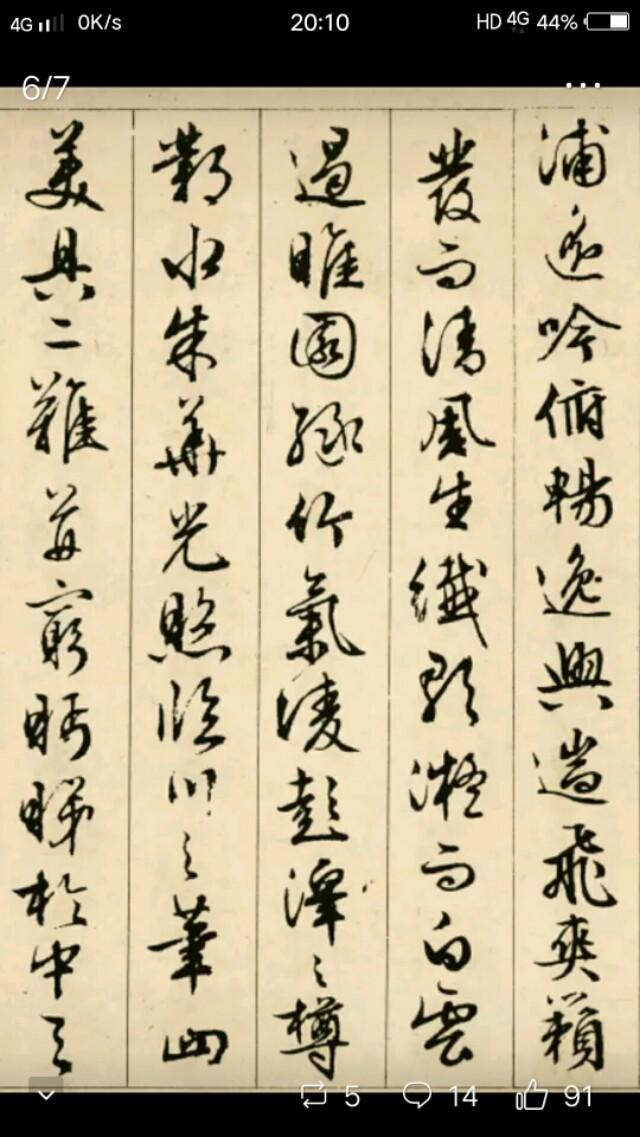 4G 0K/s 20:10 HD 4G 44%
6/7
浦遙吟俯暢逸興遄飛爽籟
發而清風生纖歌凝而白雲
遏睢園綠竹氣淩彭澤之樽
鄴水朱華光照臨川之筆四
美具二難並窮眄睇於中天
5 14 91